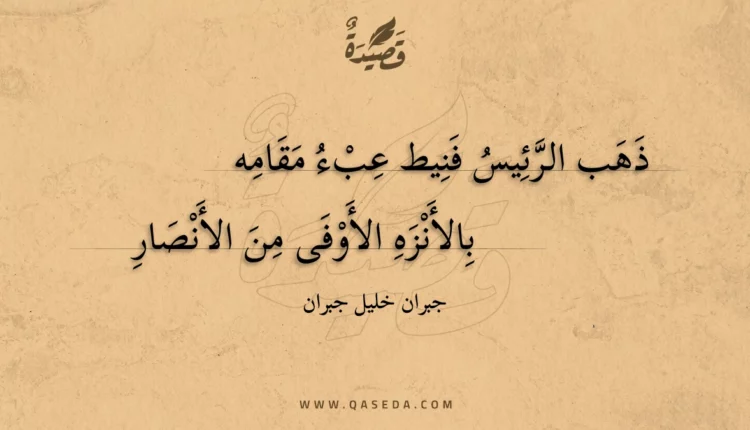 قَصِيْدَةٌ
ذَهَب الرَّئِيسُ فَنِيط عِبْءُ مَقَامِه
بِالأَنْزَهِ الأَوْفَى مِنَ الأَنْصَارِ
جبران خليل جبران
WWW.QASEDA.COM